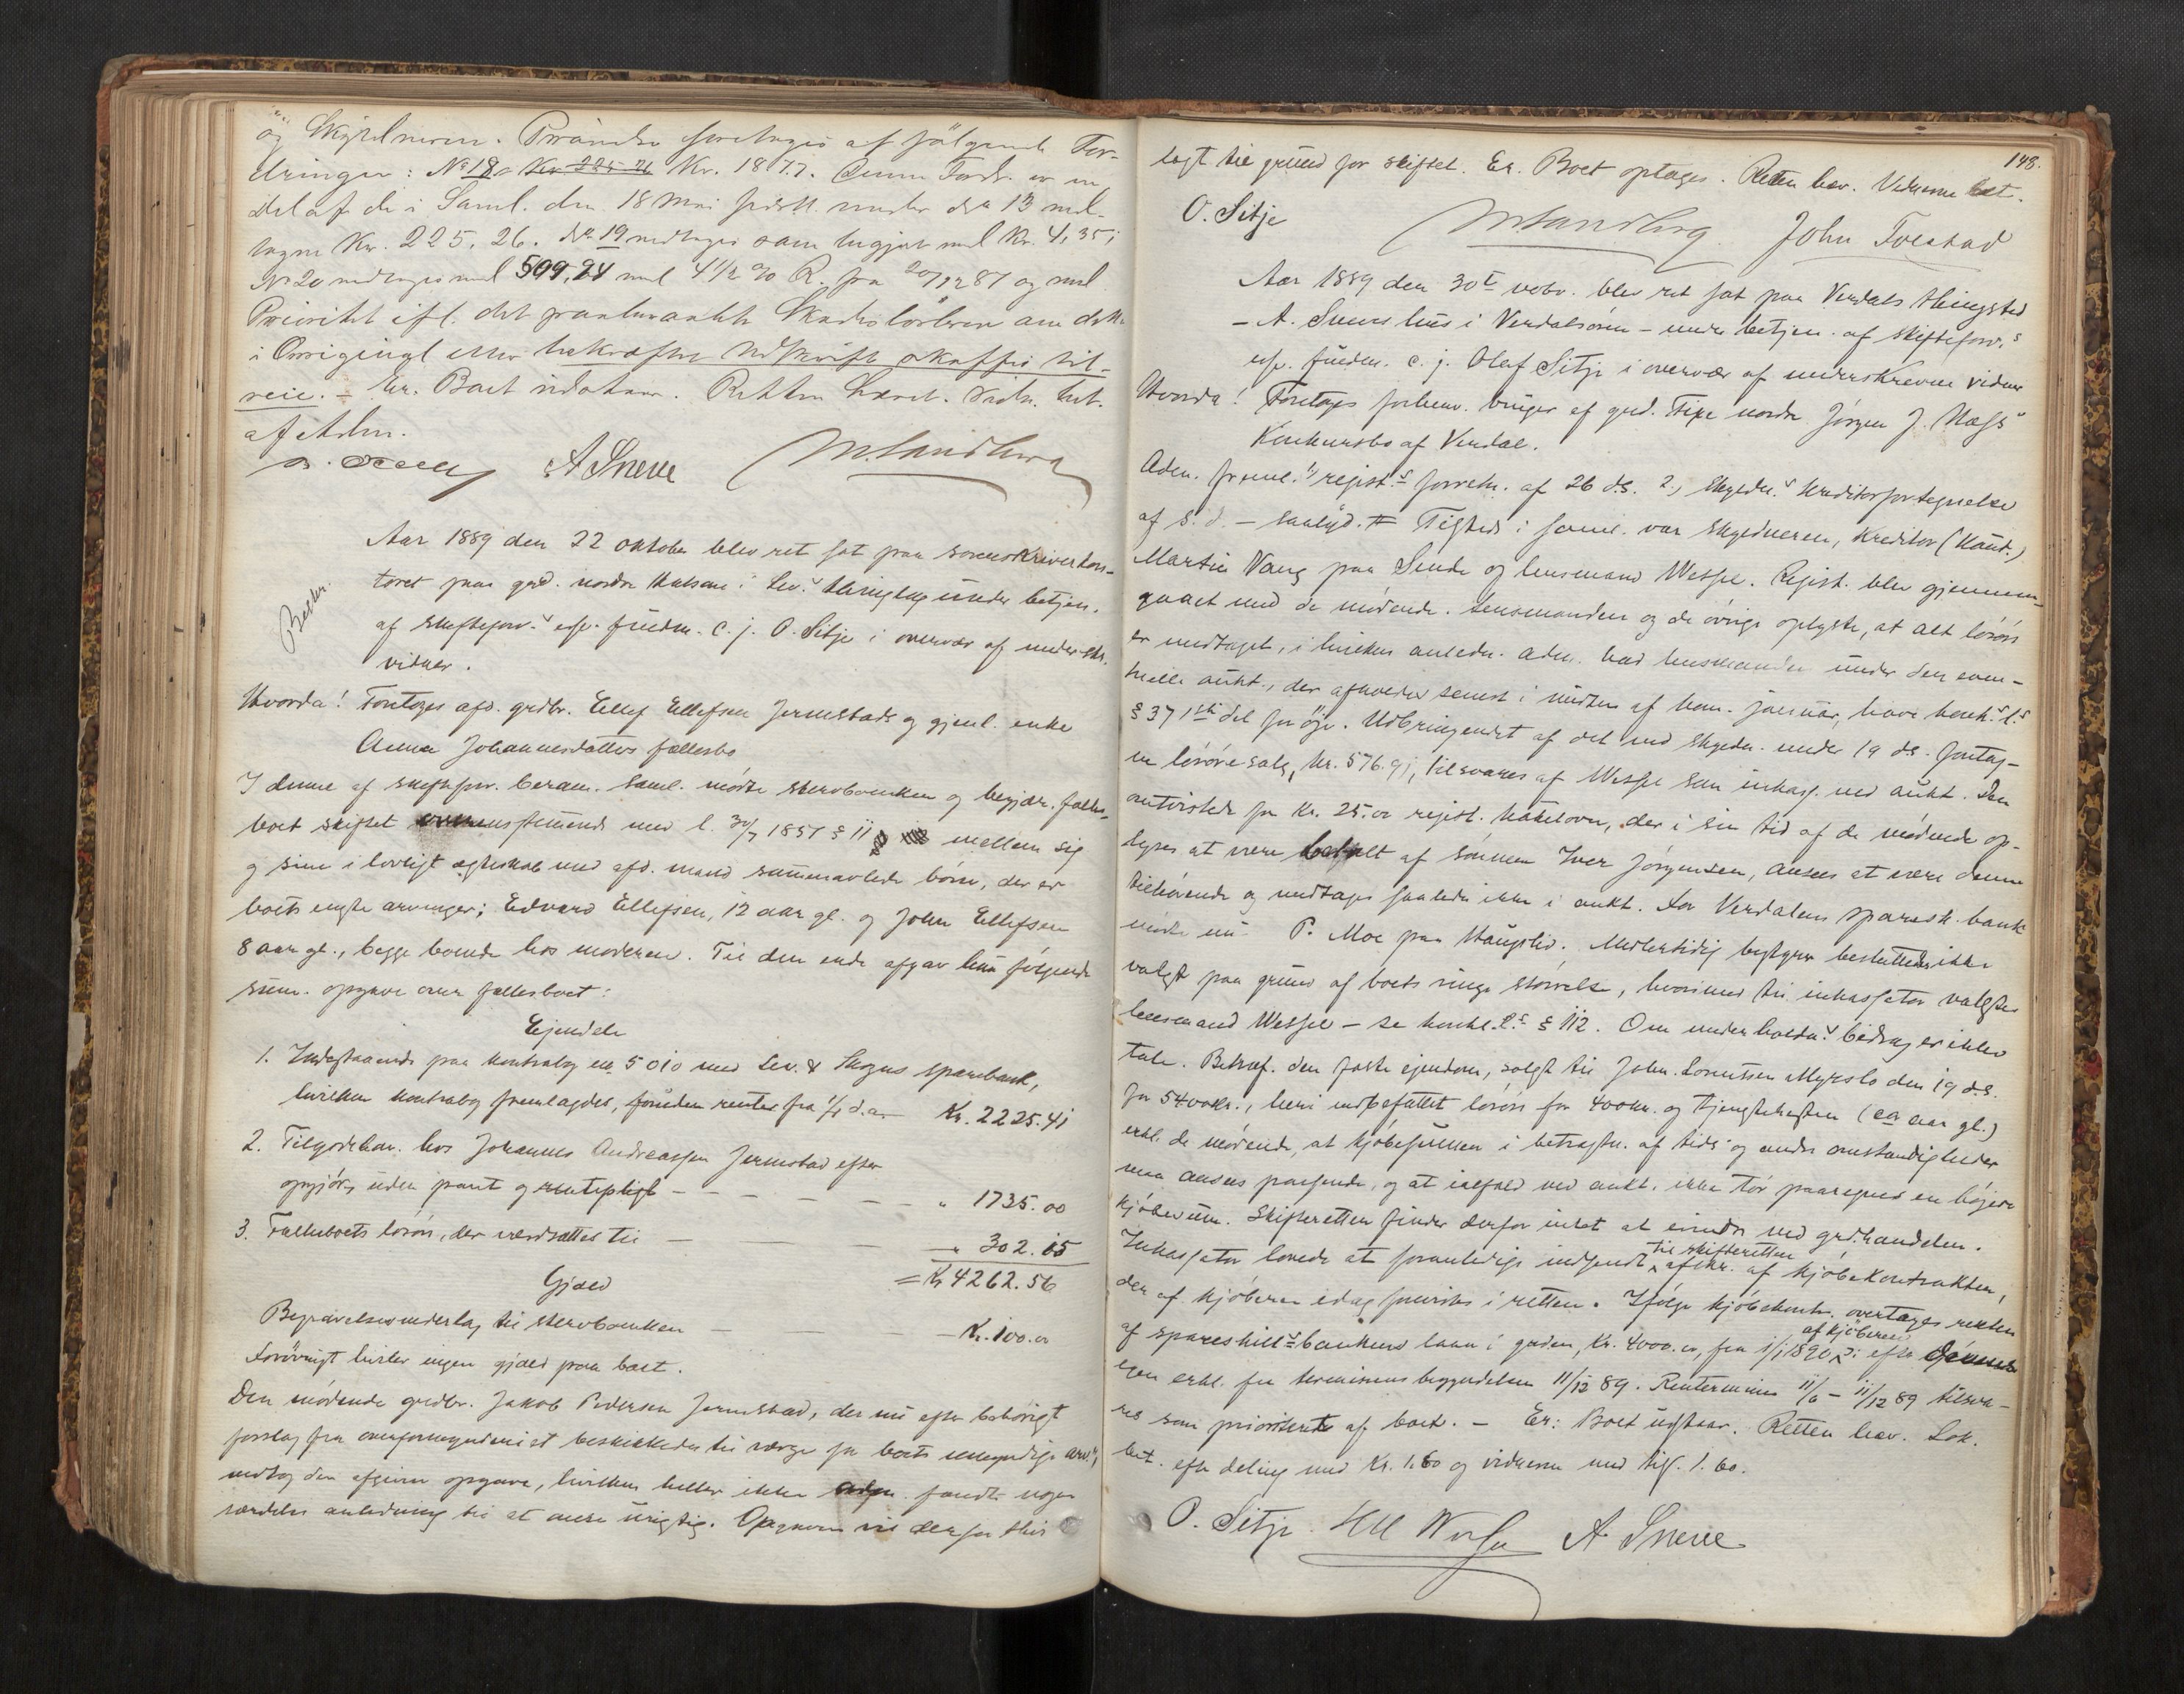 og Skyldneren. Prøvande foretoges af følgende For-
dringer: No 18 Kr 225-26 Kr. 187.7. Denne Fordr. er en
del af de i Saml. den 18 Mai sidstl. under do 13 med-
tagne Kr. 225,26. do 19 medtages som bugjort med Kr. 4,35;
No 20 medtages med 509,24 med 4 1/2 % R. fra 20/12 87 og med
Prioritet ifl. det paaberaabte Skadesløsbrev om dette
i Originial eller bekræftet Udskrift skaffes til-
veie. - Er. Boet udstaar. Retten hævet. Vidn. bet.
af Adm.
A Sneve M. Sandberg
Aar 1889 den 22 oktober blev ret sat paa sorenskriverkon-
toret paa grd. nordre i Lev.s thinglag under betjen.
af skifteforv.s efr. fuldm. c. j. O. Sitje i overvær af underskr.
vidner.
Hvorda! Foretoges afd. grdbr. Ellef Ellefsen Jermstads og gjenl. enke
Anna Johannesdatters fællesbo
I denne af skifteforv. beram. saml. mødte stervboenken og begjær. fælles-
boet skiftet overensstemmende med l. 30/7 1851 § 11 mellem sig
og sine i lovligt ægteskab med afd. mand sammenavlede børn, der er
boets eneste arvinger: Edvard Ellefsen, 12 aar gl. og John Ellefsen
8 aar gl., begge boende hos moderen. Til den ende afgav hun følgende
sum. opgave over fællesboet:
Ejendele
1. Indestaaende paa kontrabog no. 5010 med Lev. & Skogns sparebank,
hvilken kontrabog fremlagdes, foruden renter fra 1/1 d.a. Kr. 2225.41
2. Tilgodehav. hos Johannes Andreassen Jermstad efter
opgjør, uden pant og rentepligt - - - - - " 1735.00
3. Fælleboets løsøre, der værdsattes til — — — " 302.15
= Kr 4262.56
Gjæld
Begravelsesudlæg til stervboenken — — — Kr. 100.00
Forøvrigt hviler ingen gjæld paa boet.
Den mødende grdbr. Jakob Pedersen Jermstad, der nu efter behørigt
forslag fra overformynderiet beskikkedes til værge for boets umyndige arv.,
modtog den afgivne opgave, hvilken heller ikke fandt nogen
særdeles anledning til at være urigtig. Opgaven vil derfor blive
148.
lagt til grund for skiftet. Er. Boet optages. Retten hæv. Vidnerne bet.
O. Sitje M. Sandberg John Tolstad
Aar 1889 den 30te novbr. blev ret sat paa Verdals thingsted
- A. Sneves hus i Verdalsøren - under betjen. af skifteforv.s
efr. fuldm. c. j. Olaf Sitje i overvær af underskrevne vidner
Hvorda! Foretoges forhenv. bruger af grd. nordre Jørgen J. Haga's
Konkursbo af Verdal.
Adm. freml. 1, regist.s forretn. af 26 ds. 2, skyldn.s kreditorfortegnelse
af s. d. - saalyd. # Tilstede i saml. var skyldneren, kreditor (Hand.)
Martin Vang paa Sende og lensmand Wessel. Regist. blev gjennem-
gaaet med de mødende. Lensmanden og de øvrige oplyste, at alt løsøre
er medtaget, i hvilken anledn. adm. bad lensmanden under den even-
tuelle aukt., der afholdes senest i midten af kom. januar, have konk.s l.s
§ 37 1ste del for øje. Udbringendet af det ved skyldn. under 19 ds. foretag-
ne løsøresalg, Kr. 576.91, tilsvares af Wessel som inkass. ved aukt. Den
omtvistede for kr. 25.00 regist. kakelovn, der i sin tid af de mødende op-
lyses at være betalt af sønnen Iver Jørgensen, ansees at være denne
tilhørende og medtages saaledes ikke i aukt. For Verdalens sparesk. bank
mødte nu P. Moe paa Haugslid. Midlertidig bestyrer besluttedes ikke
valgt paa grund af boets ringe størrelse, hvorimod til inkassator valgtes
lensmand Wessel - se konkl.s § 112. Om underholdn.s bidrag er ikke
tale. Betræf. den faste ejendom, solgt til John Myrslo den 19 ds.
for 5400 kr., heri indbefattet løsøre for 400 kr. og tjenestehesten (ca aar gl.)
erkl. de mødende, at kjøbesummen i betragtn. af tids- og andre omstændigheder
maa ansees passende, og at ialfald ved aukt. ikke tør paaregnes en højere
kjøbesum. Skifteretten finder derfor intet at erindre ved grd.handelen.
Inkassator lovede at foranledige indsendt til skifteretten afskr. af kjøbekontrakten,
der af kjøberen idag forevistes i retten. Ifølge kjøbekontr. overtages renten
af spareskill.s bankens laan i gaarden, Kr. 4000.00, fra 1/1 1890 af kjøberen ɔ: efter
egen erkl. fra terminens begyndelse 11/12 89. Renterne 11/6 - 11/12 89 tilsva-
res som prioriterede af boet. - Er: Boet udstaar. Retten hæv. Lok.
bet. efter deling med Kr. 1.60 og vidnerne med tils. 1.60.
O. Sitje. A. Sneve